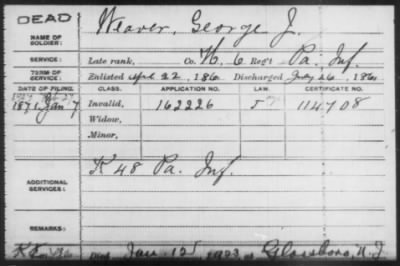 DEAD
NAME OF SOLDIER: Weaver, George J.
SERVICE: Late rank, Co. H, 6 Reg't Pa. Inf.
TERM OF SERVICE: Enlisted Apl 22, 186 Discharged July 26, 186
DATE OF FILING. CLASS. APPLICATION NO. LAW. CERTIFICATE NO.
1871 Jan 7 Invalid, 162226 114708
Widow,
Minor,
ADDITIONAL SERVICES: K 48 Pa. Inf.
REMARKS:
Died Jan. 1923, at Glassboro, N.J.